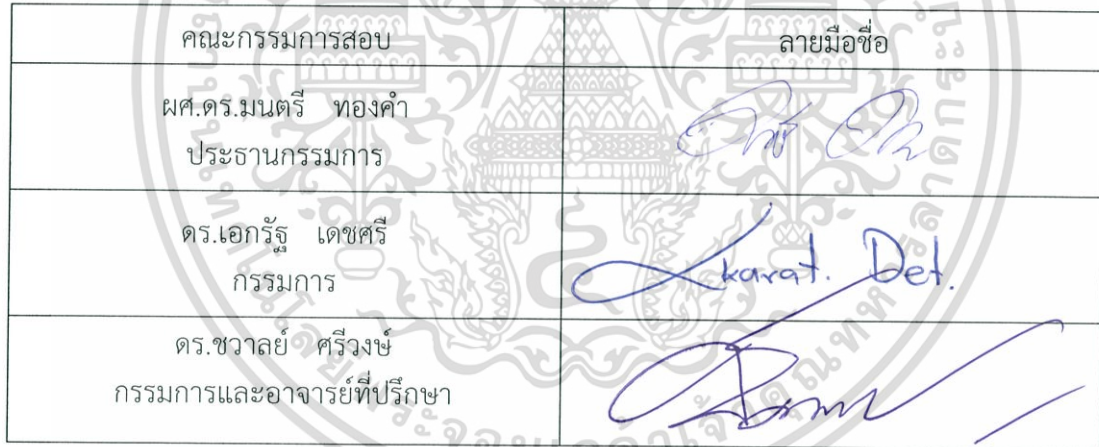 คณะกรรมการสอบ ลายมือชื่อ
ผศ.ดร.มนตรี ทองคำ
ประธานกรรมการ
ดร.เอกรัฐ เดชศรี
กรรมการ
Ekarat. Det.
ดร.ชวาลย์ ศรีวงษ์
กรรมการและอาจารย์ที่ปรึกษา